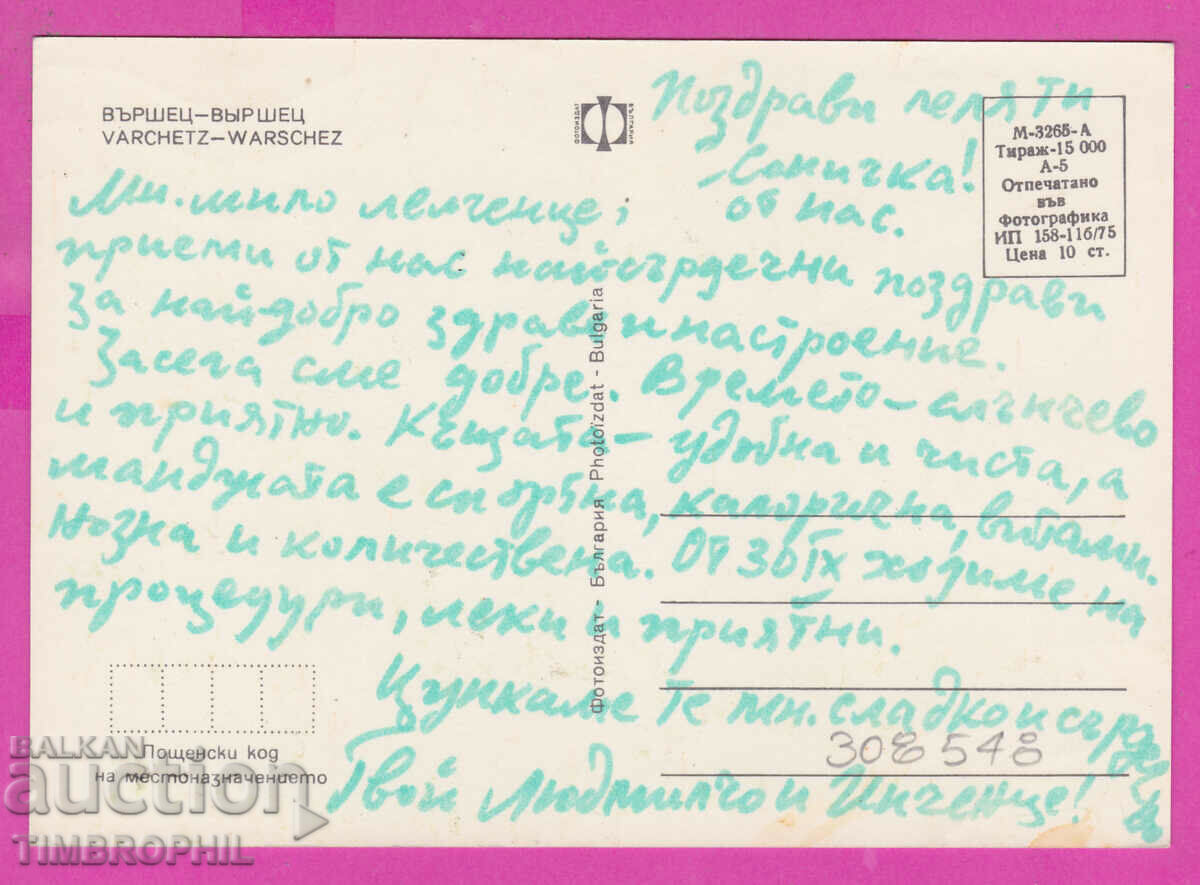 ВЪРШЕЦ–ВЫРШЕЦ
VARCHETZ–WARSCHEZ
ФОТОИЗДАТ
БЪЛГАРИЯ
М-3265-А
Тираж-15 000
А-5
Отпечатано
във
Фотографика
ИП 158-116/75
Цена 10 ст.
Поздрави леля ти
от нас.
Мн. мило лелченце,
приеми от нас най-сърдечни поздрави
за най-добро здраве и настроение.
Засега сме добре. Времето – слънчево
и приятно. Къщата – удобна и чиста, а
манджата е калорична, витами-
нозна и количествена. От 30 IX ходиме на
процедури, леки и приятни.
Цункаме те мн. сладко и сърдеч
Твои Людмилчо и Инченце!
Фотоиздат - България Photoizdat - Bulgaria
308548
Пощенски код
на местоназначението
BALKAN
auction
TIMBROPHIL